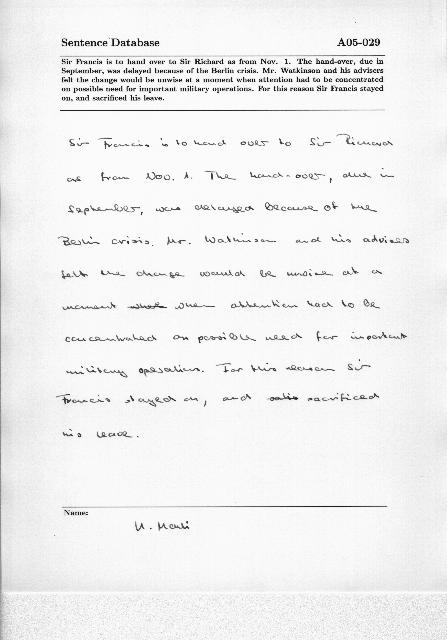 Sentence Database A05-029
Sir Francis is to hand over to Sir Richard as from Nov. 1. The hand-over, due in
September, was delayed because of the Berlin crisis. Mr. Watkinson and his advisers
felt the change would be unwise at a moment when attention had to be concentrated
on possible need for important military operations. For this reason Sir Francis stayed
on, and sacrificed his leave.
Sir Francis is to hand over to Sir Richard
as from Nov. 1. The hand-over, due in
September, was delayed because of the
Berlin crisis. Mr. Watkinson and his advisers
felt the change would be unwise at a
moment when attention had to be
concentrated on possible need for important
military operations. For this reason Sir
Francis stayed on, and sacrificed
his leave.
Name: